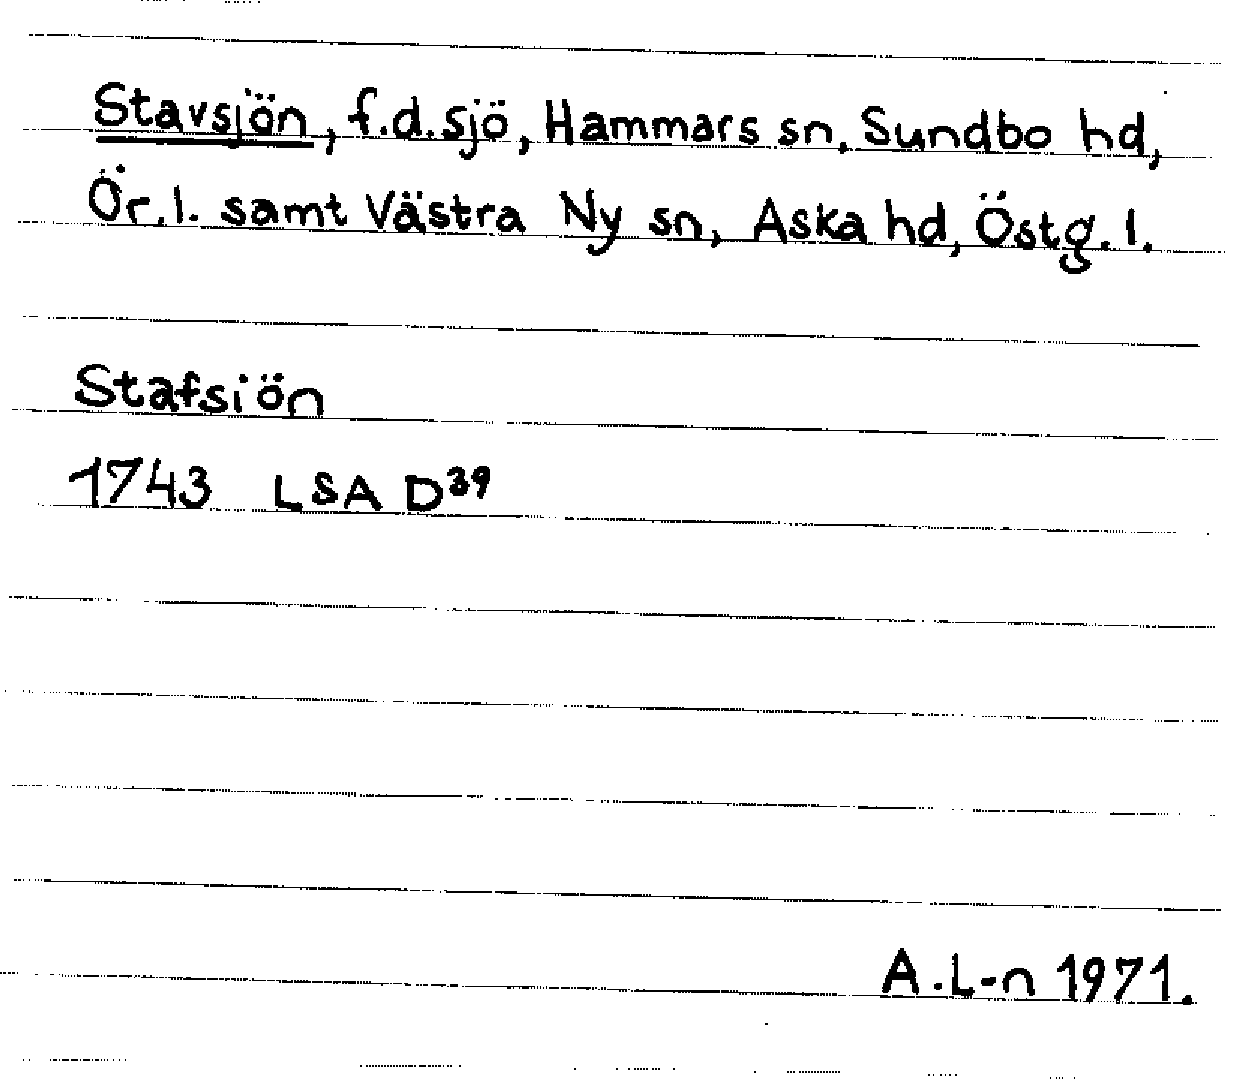 Stavsjön, f.d. sjö, Hammars sn, Sundbo hd,
Ör. l. samt Västra Ny sn, Aska hd, Östg. l.
Stafsiön
1743 LSA D39
A.L-n 1971.